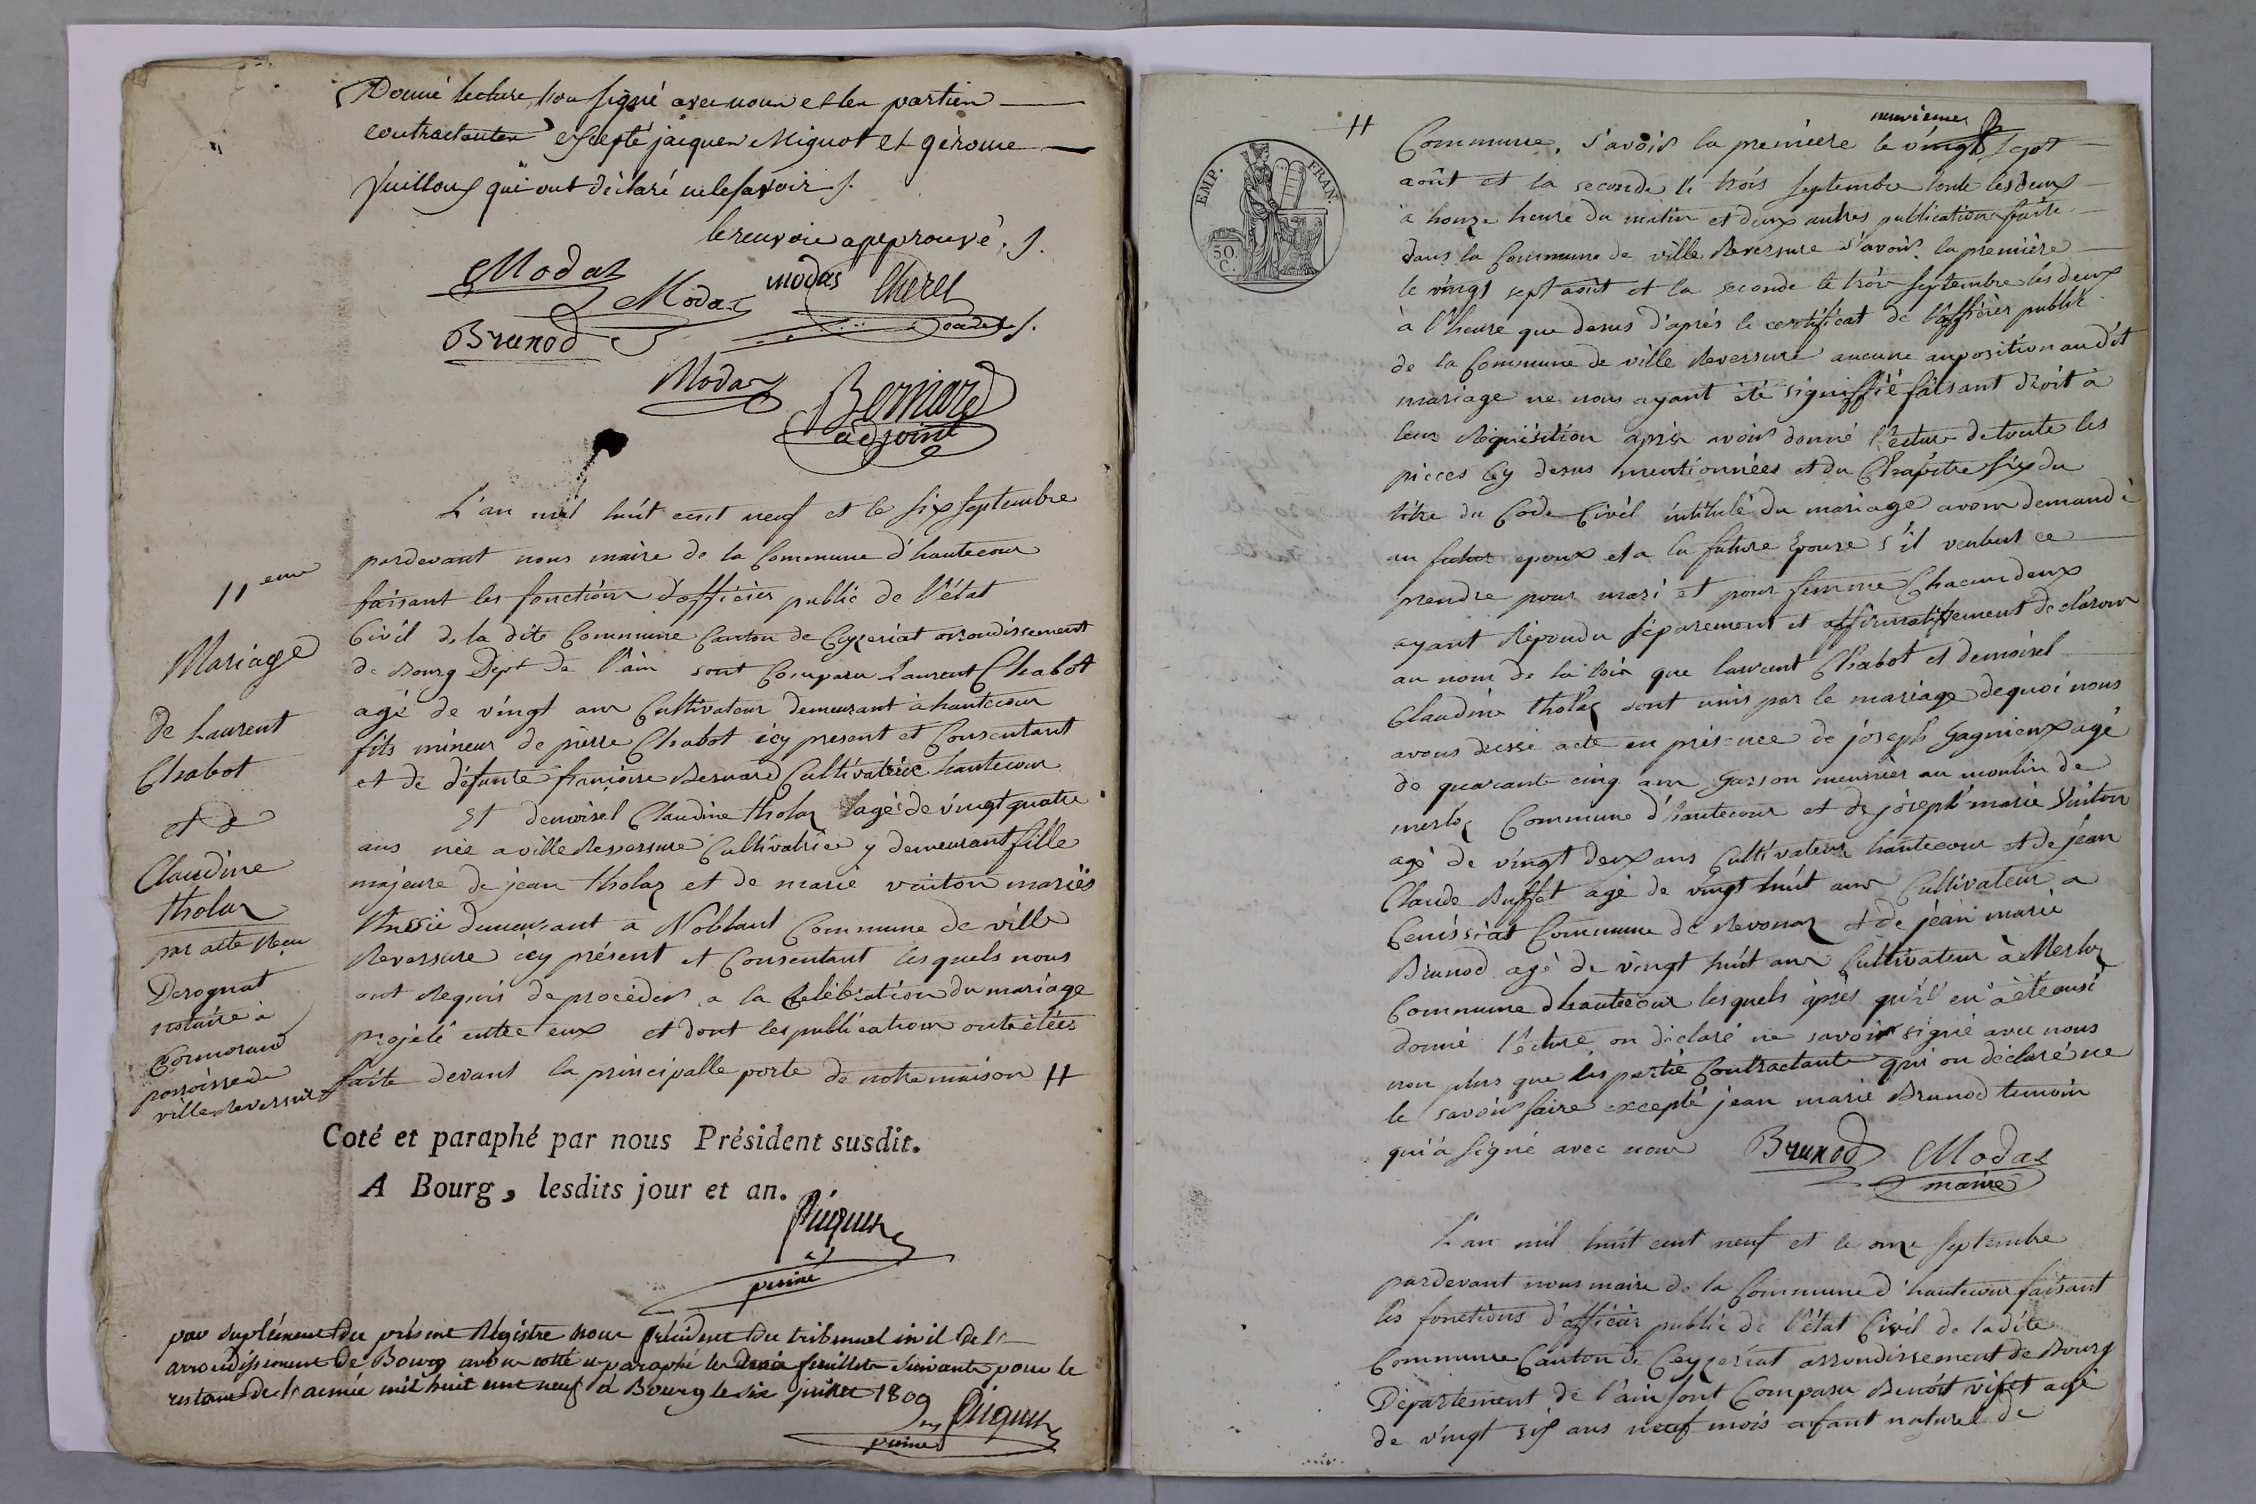 Donné lecture, l'on signé avec nous et les partien
contractanten excepté jacquen Mignot et gérome
Vuilloux qui ont déclaré ne le savoir ./.
le renvoie approuvé. ./.
Modas
Modas
modas
Cheret
Brunod
Modas
Bernard
adjoint
L'an mil huit cent neuf et le six septembre
pardevant nous maire de la Commune d'hautecour
faisant les fonction d'officier public de l'état
Civil de la dite Commune Canton de Ceyzeriat arrondissement
de Bourg Dépt de l'ain sont Comparu Laurent Chabot
agé de vingt ans Cultivateur demeurant à hautecour
fils mineur de pierre Chabot icy present et Consentant
et de défunte françoise Bernard Cultivatrice hautecour
Et demoisel Claudine tholas agé de vingt quatre
ans née a ville Reversure Cultivatrice y demeurant fille
majeure de jean tholas et de marie vuiton mariés
demeurant a Noblant Commune de ville
Reversure icy présent et Consentant lesquels nous
ont Requis de procéder a la Célébration du mariage
projeté entre eux et dont les publication ont étées
faite devant la principalle porte de notre maison #
11 eme
Mariage
de Laurent
Chabot
et de
Claudine
tholas
par acte Reçu
Derognat
notaire à
Cormorand
parroisse de
ville Reversure
Coté et paraphé par nous Président susdit.
A Bourg, lesdits jour et an.
Piquet
par suplément du présent Régistre nous président du tribunal civil de l'
arrondissement de Bourg avons cotté et paraphé les trois feuillets suivants pour le
restant de l'année mil huit cent neuf à Bourg le six juillet 1809
Piquet
EMP. FRAN.
50.
C.
neuvieme
# Commune, s'avoir la premiere le vingt sept
août et la seconde le trois septembre toute les deux
à honze heure du matin et deux autres publication faite
dans la Commune de ville Reversure s'avoir la premiere
le vingt sept août et la seconde le trois septembre les deux
à l'heure que desus d'aprés le certificat de l'officier public
de la Commune de ville Reversure aucune anposition au dit
mariage ne nous ayant été signiffié faisant droit à
leur Réquisition aprés avoir donné l'ecture de toute les
pieces Cy desus mentionnées et du Chapitre six du
titre du Code Civil intitulé du mariage avons demandé
au futur epoux et a la future Epouse s'il veulent ce
prendre pour mari et pour femme Chacun deux
ayant Répondu séparement et affirmatifement declarons
au nom de la loix que laurent Chabot et demoisel
Claudine tholas sont unis par le mariage dequoi nous
avons dressé acte en présence de joseph Gagnieux agé
de quarant cinq ans Garson meunier au moulin de
merloz Commune d'hautecour et de joseph marie Vuiton
agé de vingt deux ans Cultivateur hautecour et de jean
Claude Buffet agé de vingt huit ans Cultivateur a
Cenissiat Commune de Revonas et de jean marie
Brunod agé de vingt huit ans Cultivateur à Merloz
Commune d'hautecour lesquels aprés qu'il en à été ausi
donné l'ecture on déclaré ne savoir signé avec nous
non plus que les partie Contractante qui on déclaré ne
le savoir faire excepté jean marie Brunod temoin
qui à signé avec nous Brunod Modas
maire
L'an mil huit cent neuf et le onze septembre
pardevant nous maire de la Commune d'hautecour faisant
les fonctions d'officier public de l'état Civil de ladite
Commune Canton de Ceyzeriat arrondissement de Bourg
Département de l'ain sont Comparu Benoit agé
de vingt six ans neuf mois enfant naturel de